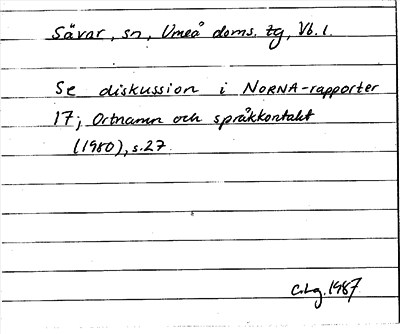 Sävar, sn, Umeå doms. tg, Vb. l.
Se diskussion i NORNA-rapporter
17; Ortnamn och språkkontakt
(1980), s. 27.
C.Lg. 1987